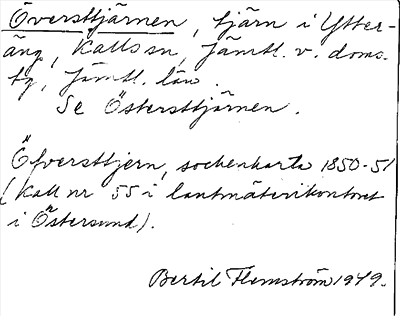 Översttjärnen, tjärn i Ytter-
äng, Kalls sn, Jämtl. v. doms.
tg, Jämtl. län.
Se Östersttjärnen.
Öfversttjern, sockenkarta 1850-51
(Kall nr 55 i lantmäterikontoret
i Östersund).
Bertil Flemström 1949.